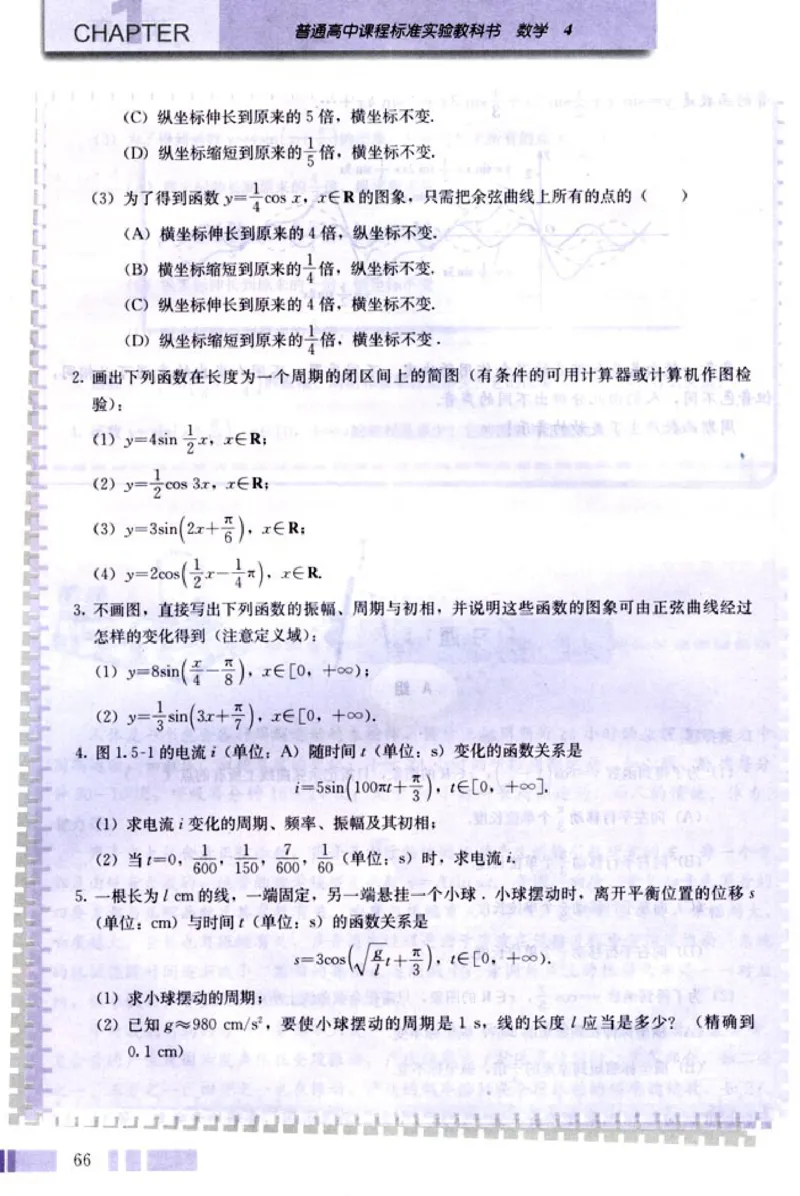 CHAPTER 1
普通高中课程标准实验教科书 数学 4
(C) 纵坐标伸长到原来的 5 倍，横坐标不变.
(D) 纵坐标缩短到原来的 1/5 倍，横坐标不变.
(3) 为了得到函数 y=1/4 cos x，x∈R 的图象，只需把余弦曲线上所有的点的（　　）
(A) 横坐标伸长到原来的 4 倍，纵坐标不变.
(B) 横坐标缩短到原来的 1/4 倍，纵坐标不变.
(C) 纵坐标伸长到原来的 4 倍，横坐标不变.
(D) 纵坐标缩短到原来的 1/4 倍，横坐标不变.
2. 画出下列函数在长度为一个周期的闭区间上的简图（有条件的可用计算器或计算机作图检
验）：
(1) y=4sin 1/2 x，x∈R;
(2) y=1/2 cos 3x，x∈R;
(3) y=3sin(2x+π/6)，x∈R;
(4) y=2cos(1/2 x-1/4 π)，x∈R.
3. 不画图，直接写出下列函数的振幅、周期与初相，并说明这些函数的图象可由正弦曲线经过
怎样的变化得到（注意定义域）：
(1) y=8sin(x/4-π/8)，x∈[0，+∞);
(2) y=1/3 sin(3x+π/7)，x∈[0，+∞).
4. 图 1.5-1 的电流 i（单位：A）随时间 t（单位：s）变化的函数关系是
i=5sin(100πt+π/3)，t∈[0，+∞].
(1) 求电流 i 变化的周期、频率、振幅及其初相；
(2) 当 t=0，1/600，1/150，7/600，1/60（单位：s）时，求电流 i.
5. 一根长为 l cm 的线，一端固定，另一端悬挂一个小球．小球摆动时，离开平衡位置的位移 s
（单位：cm）与时间 t（单位：s）的函数关系是
s=3cos(√(g/l) t+π/3)，t∈[0，+∞).
(1) 求小球摆动的周期；
(2) 已知 g≈980 cm/s²，要使小球摆动的周期是 1 s，线的长度 l 应当是多少？（精确到
0.1 cm）
66